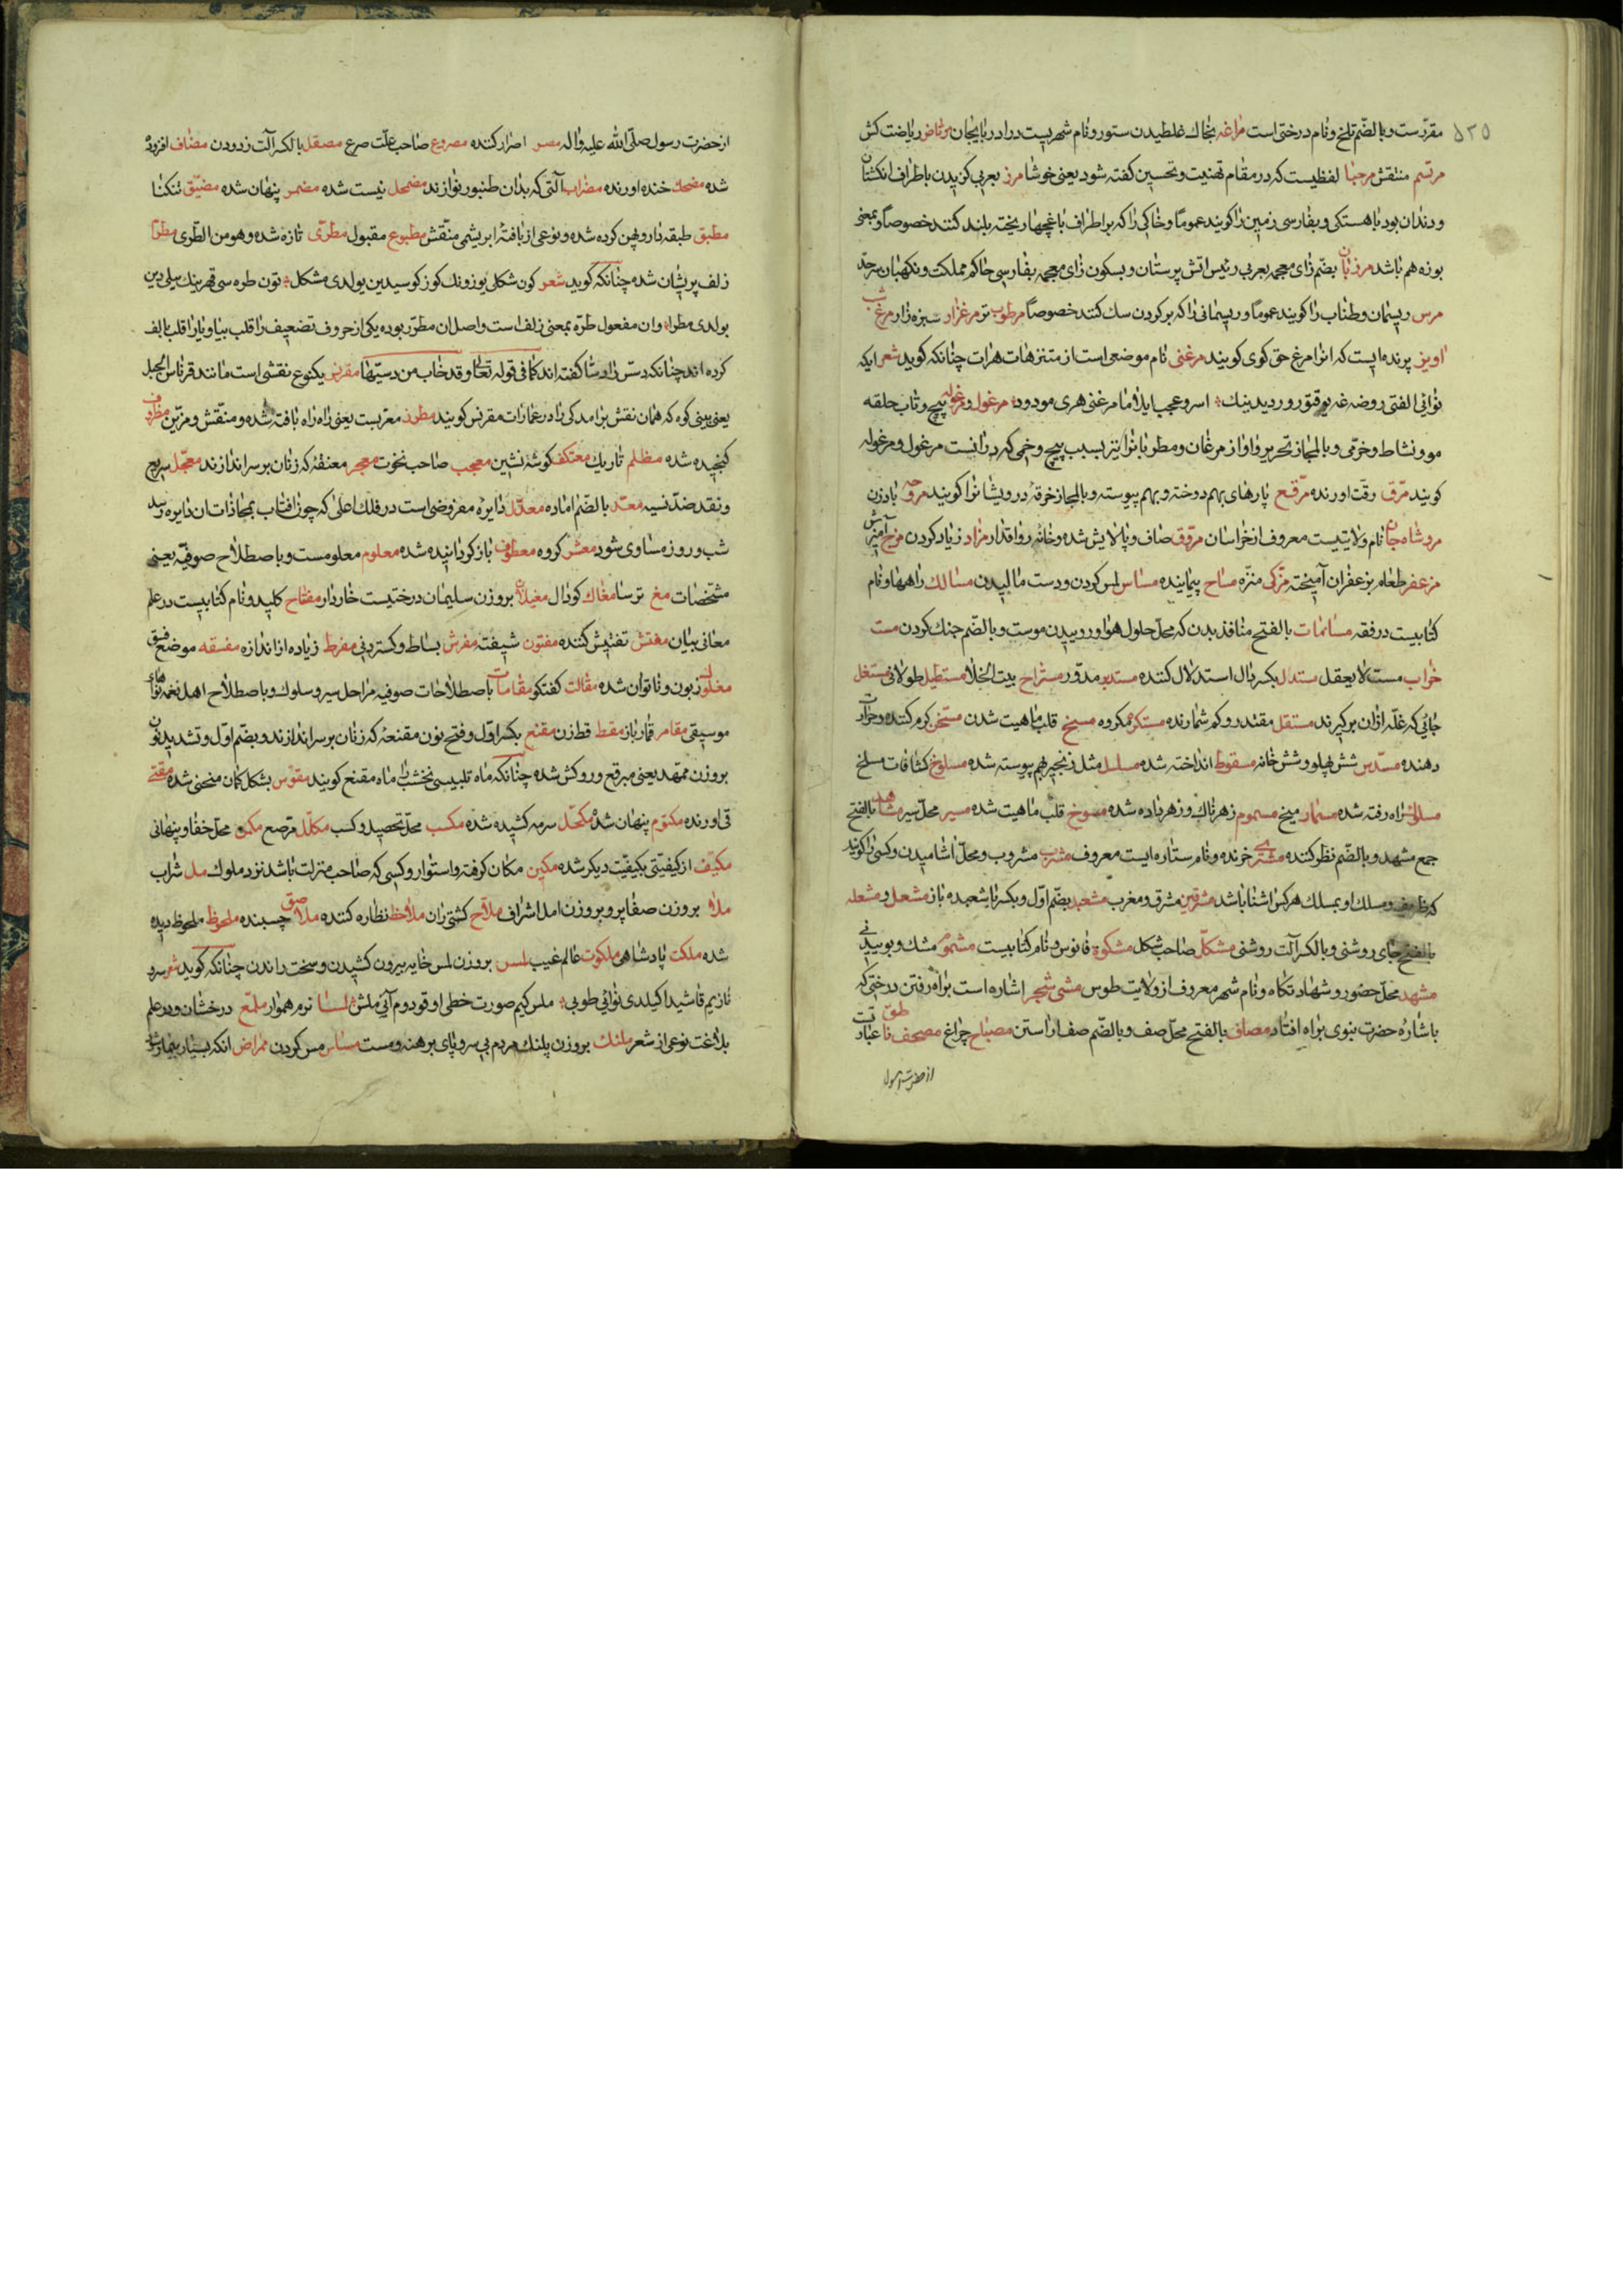 ۵۲۵
مقررست و بالضّم تلخ و نام درختی است مراغه بخاك غلطیدن ستور و نام شهریست در اذربایجان مرتاض ریاضت کش
مرتسم منتقش مرحبا لفظیست که در مقام تهنیت و تحسین کفته شود یعنی خوشا مرز بعربی کزیدن باطراف انکشتان
و دندان بود باهستکی و بفارسی زمین را کویند عموما و خاکی را که بر اطراف باغچها ریخته بلند کنند خصوصا و بمعنی
بوزه هم باشد مرزبان بضم زای معجمه بعربی رئیس اتش پرستان و بسکون زای معجمه بفارسی حاکم مملکت و نکهبان سرحد
مرس ریسمان و طناب را کویند عموما و ریسمانی را که بر کردن سك کنند خصوصا مرطوب تر مرغزار سبزه زار مرغ شب
اویز پرنده ایست که انرا مرغ حق کوی کویند مرغنی نام موضعی است از متنزهات هرات چنانکه کوید شعر ایکه
نوائی الفتی روضه غه یوقتور وردیدینك اسرو عجب ایلاما مرغنی هری مودود مرغول و مرغوله پیچ و تاب حلقه
مو و نشاط و خرّمی و بالمجاز تحریر و اواز مرغان و مطربانرا نیز بسبب پیچ و خمی که در انست مرغول و مرغوله
کویند مرّق رقّت اورنده مرقّع پارهای بهم دوخته و بهم پیوسته و بالمجاز خرقهٔ درویشانرا کویند مروحه بادزن
مروشاه جان نام ولایتیست معروف از خراسان مروّق صاف و پالایش شده و خانه رواقدار مزاد زیاد کردن مزج آمیزش
مزعفر طعام بزعفران آمیخته مزکّی منزّه مساح پیماینده مساس لمس کردن و دست مالیدن مسالك راهها و نام
کتابیست در فقه مسامات بالفتح منافذ بدن که محل حلول هوا و روییدن موست و بالضّم جنك کردن مست
خراب مست لایعقل مستدل بکسر دال استدلال کننده مستدیر مدوّر مستراح بیت الخلا مستطیل طولانی مستغل
جائی که غلّه ازان برکیرند مستقل مقتدر و کم شمارنده مستکره مکروه مسخ قلب ماهیت شدن مسخّن کرم کننده و حرارت
دهنده مسدّس شش پهلو و شش خانه مسقوط انداخته شده مسلسل مثل زنجیر بهم پیوسته شده مسلوخ کثافات مسلخ
مسلوك راه رفته شده مسمار میخ مسموم زهرناك و زهر داده شده مسوخ قلب ماهیت شده مسیر محل سیر مشاهد بالفتح
جمع مشهد و بالضم نظر کننده مشتری خرنده و نام ستاره ایست معروف مشرب مشروب و محل اشامیدن و کسی را کویند
که بمسلك او بمسلك هر کس اشنا باشد مشرقین مشرق و مغرب مشعبد بضّم اوّل و بکسر با شعبده باز مشعل و مشعله
بالفتح جای روشنی و بالکسر آلت روشنی مشکّل صاحب شکل مشکوة فانوس و نام کتابیست مشموم مشك و بوییدنی
مشهد محل حضور و شهادتکاه و نام شهر معروف از ولایت طوس مشی شجر اشاره است براه رفتن درختی که
باشارهٔ حضرت نبوی براه افتاد مصاف بالفتح محل صف و بالضّم صف اراستن مصباح چراغ مصحف ناطق عبارت
از حضرت رسول
از حضرت رسول صلّی الله علیه و اله مصر اصرار کننده مصروع صاحب علّت صرع مصقل بالکسر آلت زدودن مضاف افزوده
شده مضحك خنده اورنده مضراب آلتی که بدان طنبور نوازند مضمحل نیست شده مضمر پنهان شده مضیق تنکنا
مطبق طبقه دار و پهن کرده شده و نوعی از بافتهٔ ابریشمی منقّش مطبوع مقبول مطرّی تازه شده و هو من الطّری مطرّا
زلف پریشان شده چنانکه کوید شعر کون شکلی یوزونك کوزکوسیدین بولدی مشکل تون طره سی قهرینك سیلی دین
بولدی مطرا وان مفعول طرّه بمعنی زلف است و اصل ان مطرّر بوده یکی از حروف تضعیف را قلب بیا و یا را قلب بالف
کرده اند چنانکه دسّس را دسّا کفته اند کما فی قوله تعالی و قد خاب من دسیّها مقرنس یکنوع نقشی است مانند قرناس الجبل
یعنی بینی کوه که همان نقش برامدکی را در عمارات مقرنس کویند مطرز معرّبست یعنی راه راه بافته شده و منقّش و مزیّن مظروف
کنجیده شده مظلم تاریك معتکف کوشه نشین معجب صاحب نخوت معجر معنقهٔ که زنان بر سر اندازند معجّل سریع
و نقد ضد نسیه معدّ بالضّم اماده معدّل دایرهٔ مفروضی است در فلك اعلی که چون افتاب بمحاذات ان دایره رسد
شب و روز مساوی شود معشر کروه معطوف باز کردانیده شده معلوم معلومست و باصطلاح صوفیّه یعنی
مشخّصات مغ ترسا مغاك کودال مغیلان بر وزن سلیمان درختیست خاردار مفتاح کلید و نام کتابیست در علم
معانی بیان مفتّش تفتیش کننده مفتون شیفته مفرش بساط و کستردنی مفرط زیاده از اندازه مفسقه موضع فسق
مغلوب زبون و ناتوان شده مقالت کفتکو مقامات باصطلاحات صوفیه مراحل سیر و سلوك و باصطلاح اهل نغمه نواهای
موسیقی مقامر قمارباز مقط قط زن مقنع بکسر اوّل و فتح نون مقنعهٔ که زنان بر سر اندازند و بضم اوّل و تشدید نون
بر وزن ممهّد یعنی مبرقع و روکش شده چنانکه ماه تلبیسی نخشب را ماه مقنع کویند مقوّس بشکل کمان منحنی شده مقئ
قی اورنده مکتوم پنهان شده مکحّل سرمه کشیده شده مکسب محلّ تحصیل و کسب مکلّل مرّصع مکمن محل خفا و پنهانی
مکیّف از کیفیّتی بکیفیّت دیکر شده مکین مکان کرفته و استوار و کسی که صاحب منزلت باشد نزد ملوك مل شراب
ملأ بر وزن صفا پر و بر وزن امد اشراف ملاّح کشتی ران ملاحظ نظاره کننده ملاصق چسبنده ملحوظ ملحوظ دیده
شده ملکت پادشاهی ملکوت عالم غیب ملس بر وزن لمس خایه بیرون کشیدن و سخت راندن چنانکه کوید شعر سرو
نازیم قاشیدا کیلدی نوائی طوبی ملس کیم صورت خطی اوقودوم آنی ملش ملسا نرم هموار ملمّع درخشان و در علم
بلاغت نوعی از شعر ملنك بر وزن پلنك مردم بی سر و پای برهنه و مست مساس مس کردن ممراض انکه بسیار بیمار شود